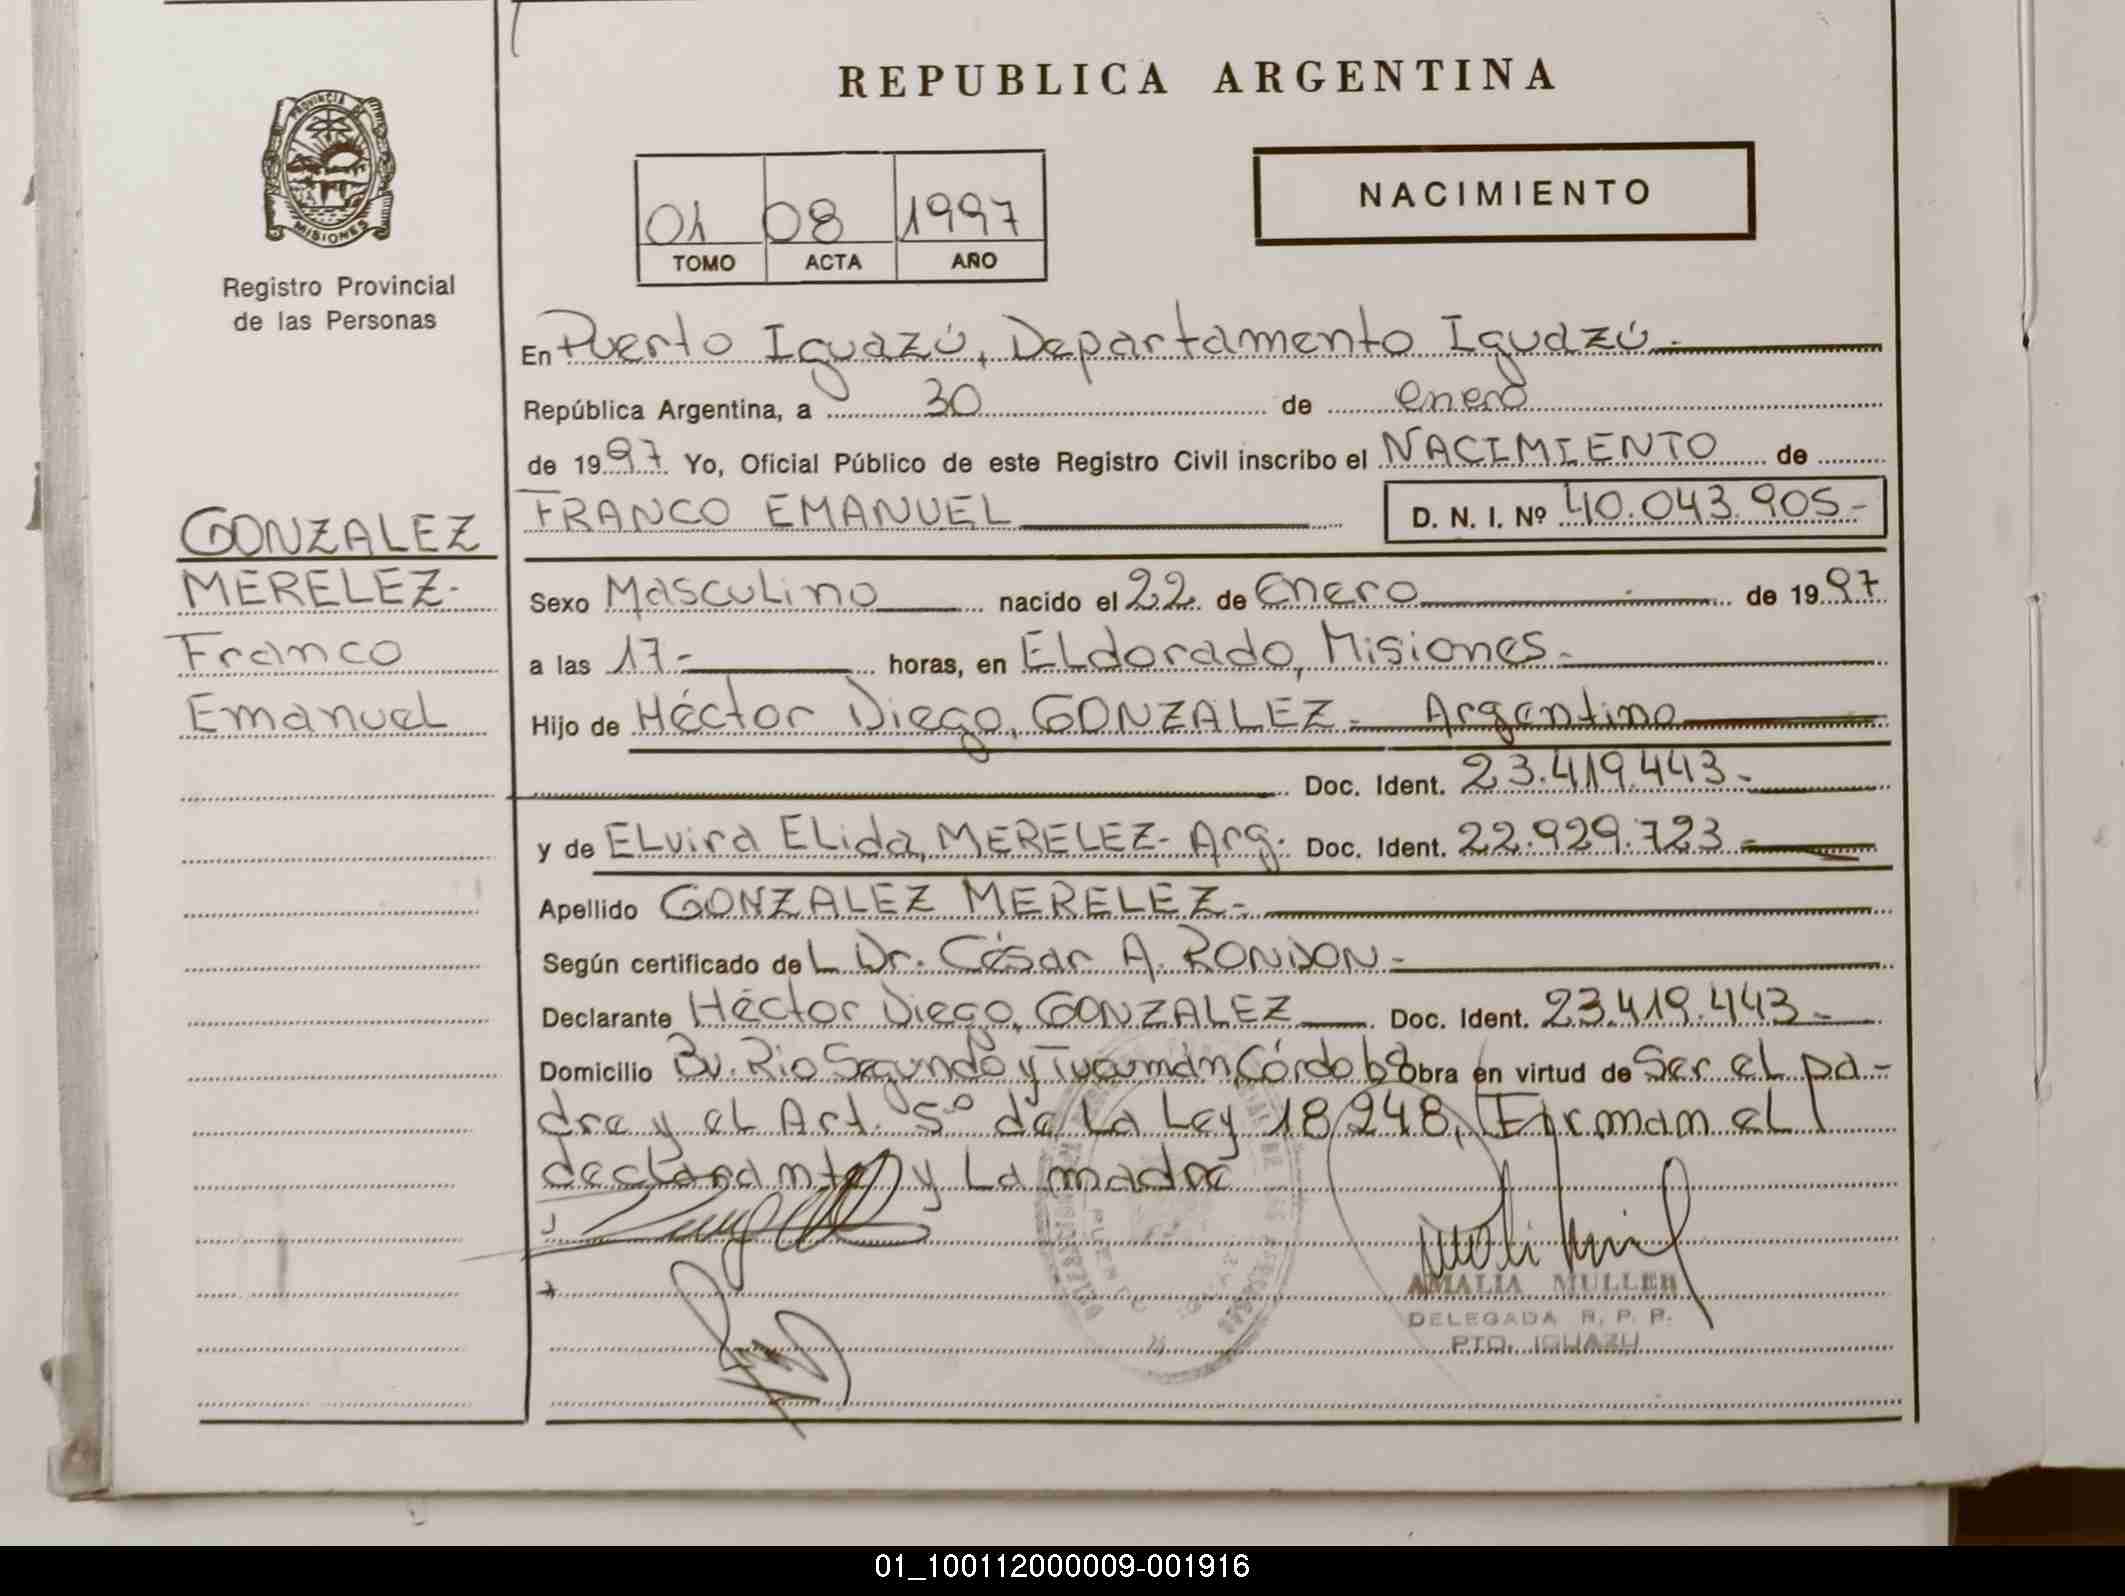 REPUBLICA ARGENTINA
PROVINCIA DE
MISIONES
Registro Provincial
de las Personas
01 08 1997
TOMO ACTA AÑO
NACIMIENTO
GONZALEZ
MERELEZ.
Franco
Emanuel
En Puerto Iguazú, Departamento Iguazú.
República Argentina, a 30 de enero
de 1997. Yo, Oficial Público de este Registro Civil inscribo el NACIMIENTO de
FRANCO EMANUEL D. N. I. Nº 40.043.905-
Sexo Masculino nacido el 22 de Enero de 1997
a las 17- horas, en Eldorado, Misiones-
Hijo de Héctor Diego, GONZALEZ- Argentino
Doc. Ident. 23.419.443-
y de Elvira Elida, MERELEZ- Arg. Doc. Ident. 22.929.723-
Apellido GONZALEZ MERELEZ-
Según certificado del Dr. César A. RONDON-
Declarante Héctor Diego, GONZALEZ Doc. Ident. 23.419.443-
Domicilio Bv. Rio Segundo y Tucumán, Córdoba Obra en virtud de Ser el pa-
dre y el Art. 5º de la Ley 18.248, Firman el
declarante y la madre
AMALIA MULLER
DELEGADA R. P. P.
PTO. IGUAZU
01_100112000009-001916